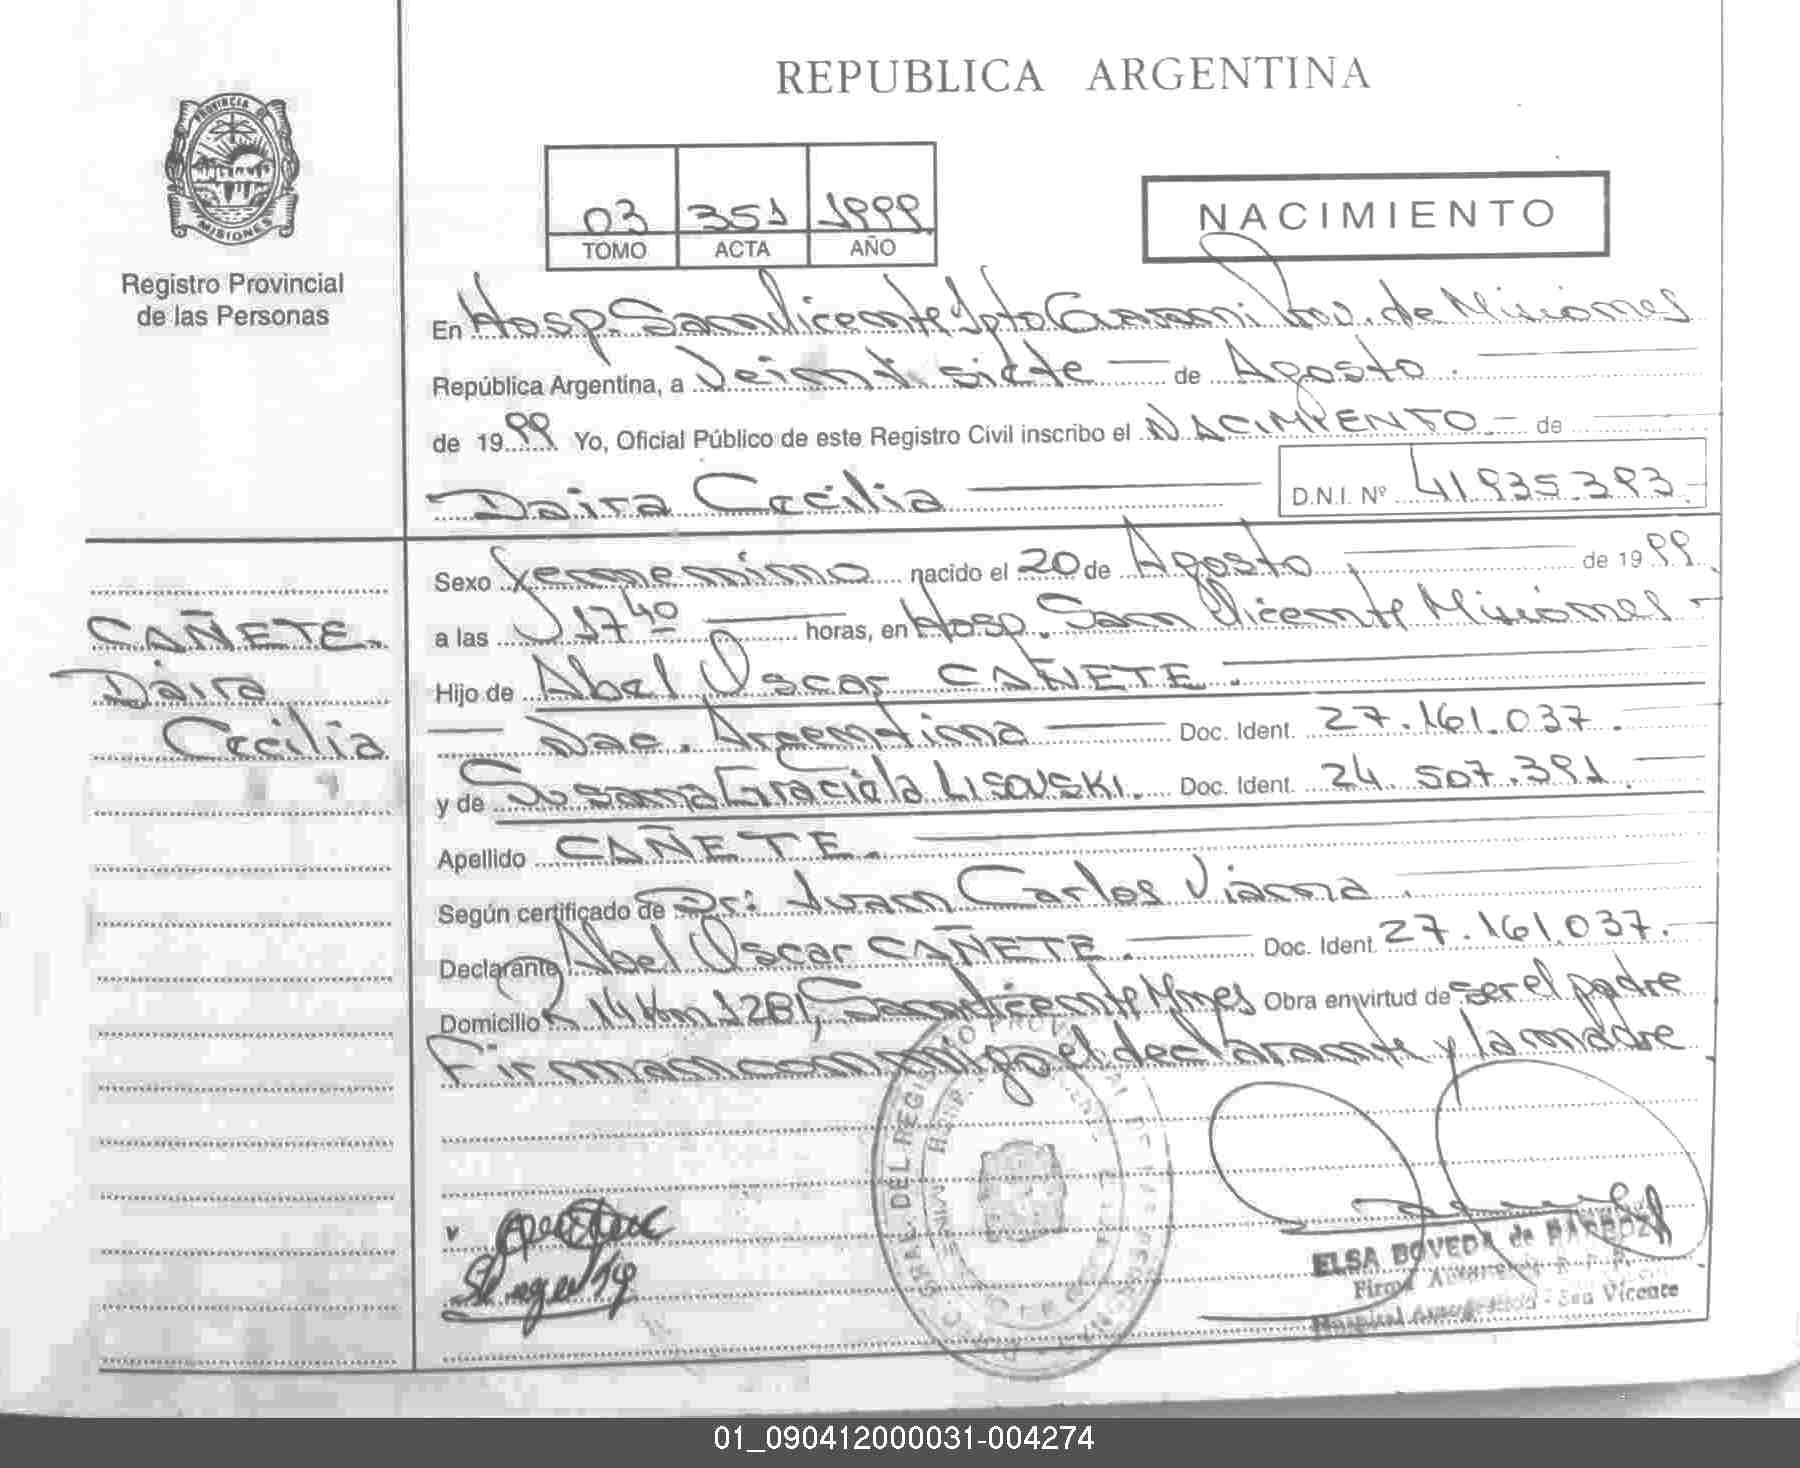 REPUBLICA ARGENTINA
PROVINCIA DE
MISIONES
Registro Provincial
de las Personas
03 351 1999
TOMO ACTA AÑO
NACIMIENTO
En Hosp. San Vicente Dpto Guarani Prov. de Misiones
República Argentina, a Veinti siete de Agosto
de 1999 Yo, Oficial Público de este Registro Civil inscribo el NACIMIENTO de
Daira Cecilia
D.N.I. Nº 41.935.393
CAÑETE.
Daira
Cecilia
Sexo Femenino nacido el 20 de Agosto de 1999
a las 17 40 horas, en Hosp. San Vicente Misiones
Hijo de Abel Oscar CAÑETE.
Nac. Argentina Doc. Ident. 27.161.037.
y de Susana Graciela LISOVSKI. Doc. Ident. 24.507.391.
Apellido CAÑETE.
Según certificado de Dr: Juan Carlos Vianna.
Declarante Abel Oscar CAÑETE. Doc. Ident. 27.161.037.
Domicilio R 14 Km 1281, San Vicente Mnes Obra en virtud de ser el padre
Firman conmigo el declarante y la madre
ELSA BOVEDA de BARBOZA
Firma
Hospital - San Vicente
01_090412000031-004274